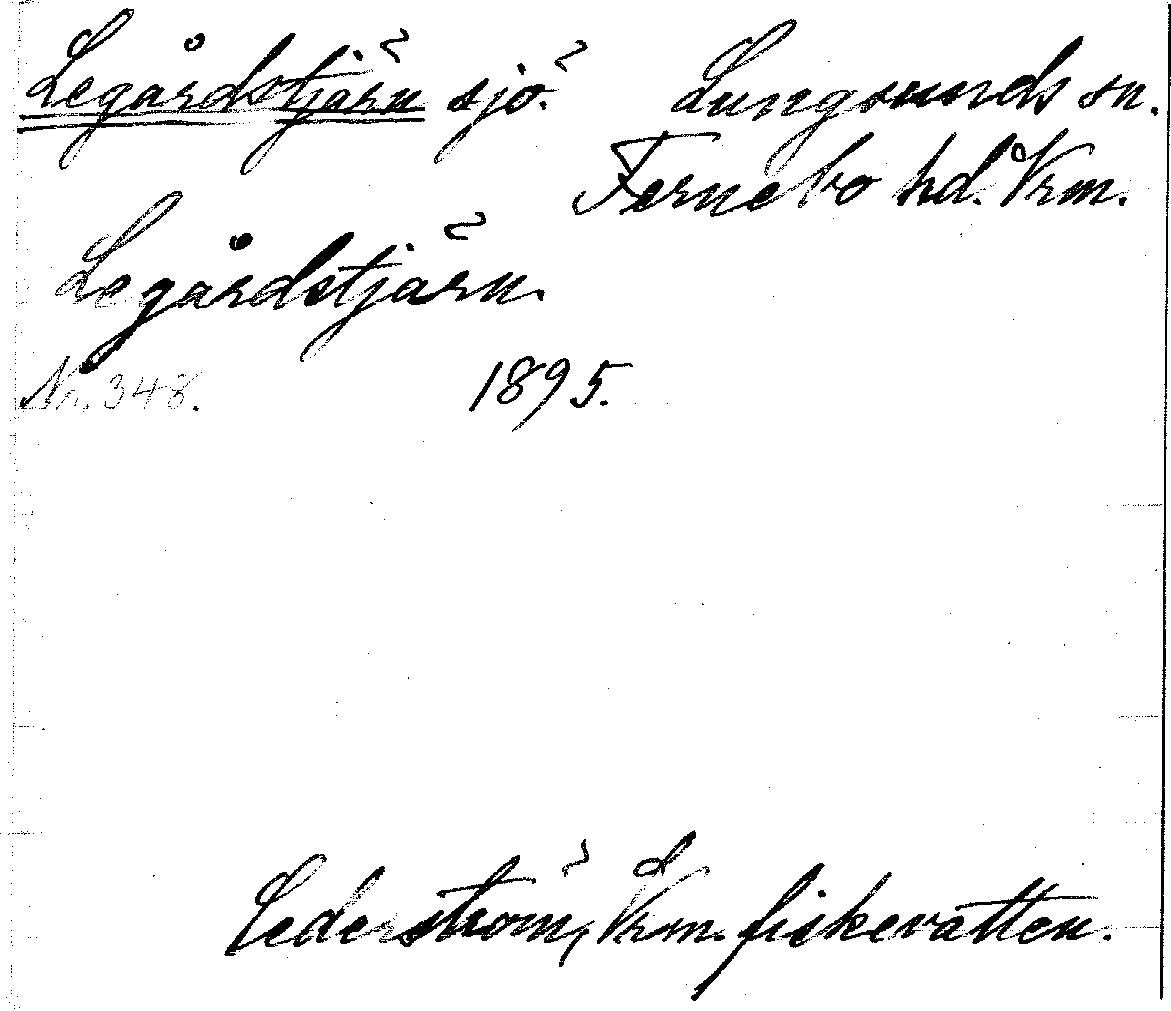 Legårdstjärn sjö. Lungsunds sn.
Fernebo hd. Vrm.
Legårdstjärn.
Nr. 348. 1895.
Cederström, Vrm. fiskevatten.